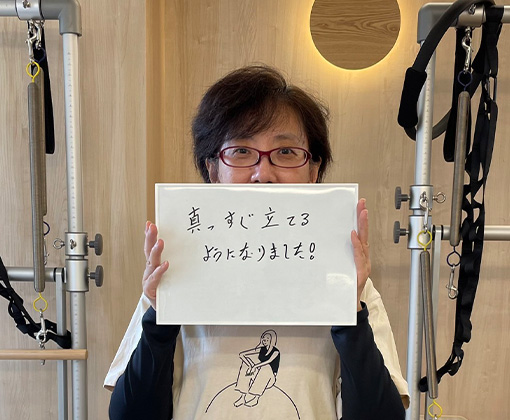 真っすぐ立てる
ようになりました!